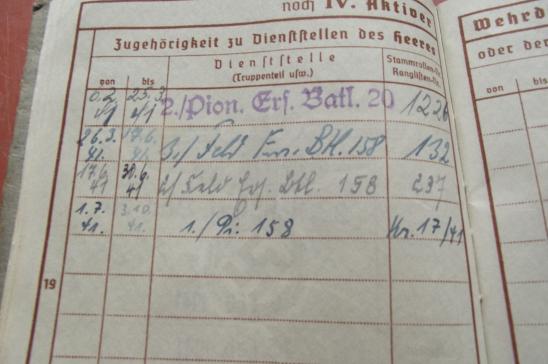 noch IV. Aktiver
Zugehörigkeit zu Dienststellen des Heeres
von bis Dienststelle
(Truppenteil usw.) Stammrollen-Nr.
Ranglisten-Nr.
41 25.3. 41 2./Pion. Ers. Batl. 20 122
26.3. 41. 3./ Feld Ers. Btl. 158 132
17.6. 41 30.6. 41 2/ Feld Ers. Btl. 158 237
1.7. 41. 3.10. 41. 1./Pi. 158 Nr. 17/41
19
Wehrd
oder der
von bis